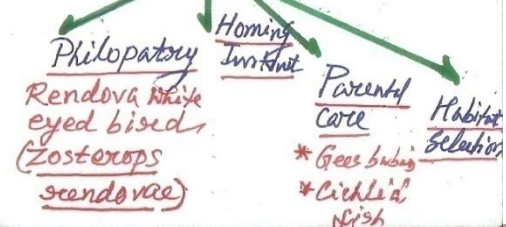 Philopatry
Rendova White
eyed bird
(Zosterops
rendovae)
Homing
Instinct
Parental
Care
* Geese babies
* Cichlid
fish
Habitat
Selection